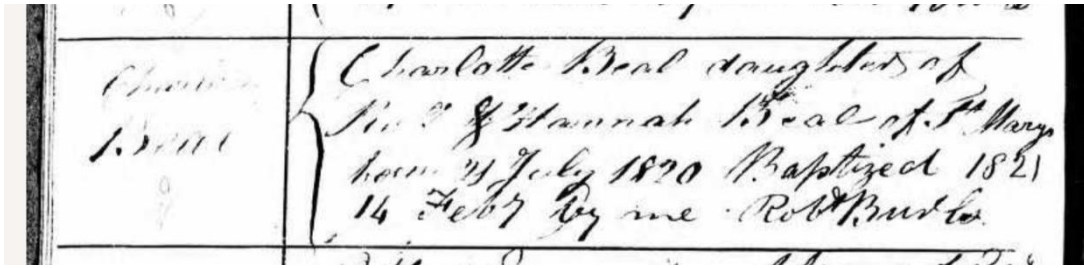 Charlotte
Beal
Charlotte Beal daughter of
& Hannah Beal of St. Marys
born 21 July 1820 Baptized 1821
14 Feby by me Robt